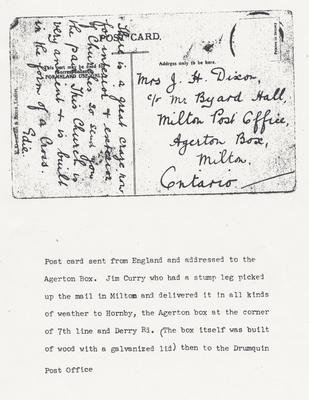 POST CARD.
This post may be used for
Address only to be here.
Mrs J. H. Dixon,
c/o Mr Byard Hall,
Milton Post Office,
Agerton Box,
Milton.
Ontario
There is a great craze now
for interior & exterior
of Churches so sent you
the pair. This Church is
very ancient & is built
in the form of a Cross.
Edie.
Post card sent from England and addressed to the
Agerton Box. Jim Curry who had a stump leg picked
up the mail in Milton and delivered it in all kinds
of weather to Hornby, the Agerton box at the corner
of 7th line and Derry Rd. (The box itself was built
of wood with a galvanized lid) then to the Drumquin
Post Office